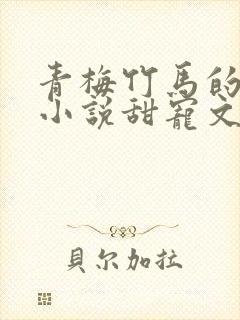 青梅竹馬的
小說甜寵文
貝尔加拉